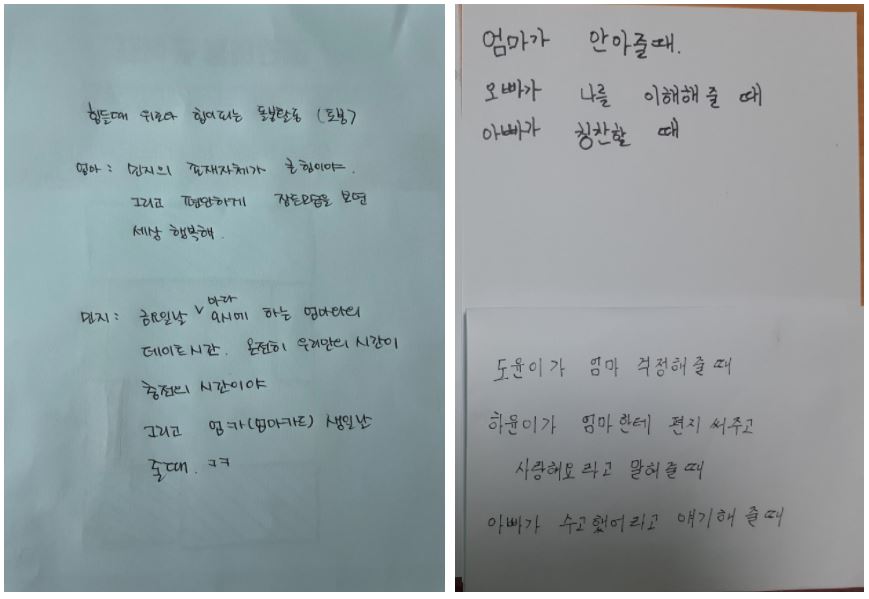 힘들때 위로와 힘이되는
엄마 : 민지의 존재자체가 큰힘이야.
그리고 편안하게 잠든모습을 보면
세상 행복해.
민지 : 금요일날 마다 9시에 하는 엄마와의
데이트시간. 온전히 우리만의 시간이
충전의 시간이야
그리고 엄카(엄마카드) 생일날
줄때. ㅋㅋ
엄마가 안아줄때.
오빠가 나를 이해해 줄 때
아빠가 칭찬할 때
도윤이가 엄마 걱정해줄때
하윤이가 엄마한테 편지 써주고
사랑해요라고 말해줄때
아빠가 수고했어라고 얘기해 줄때